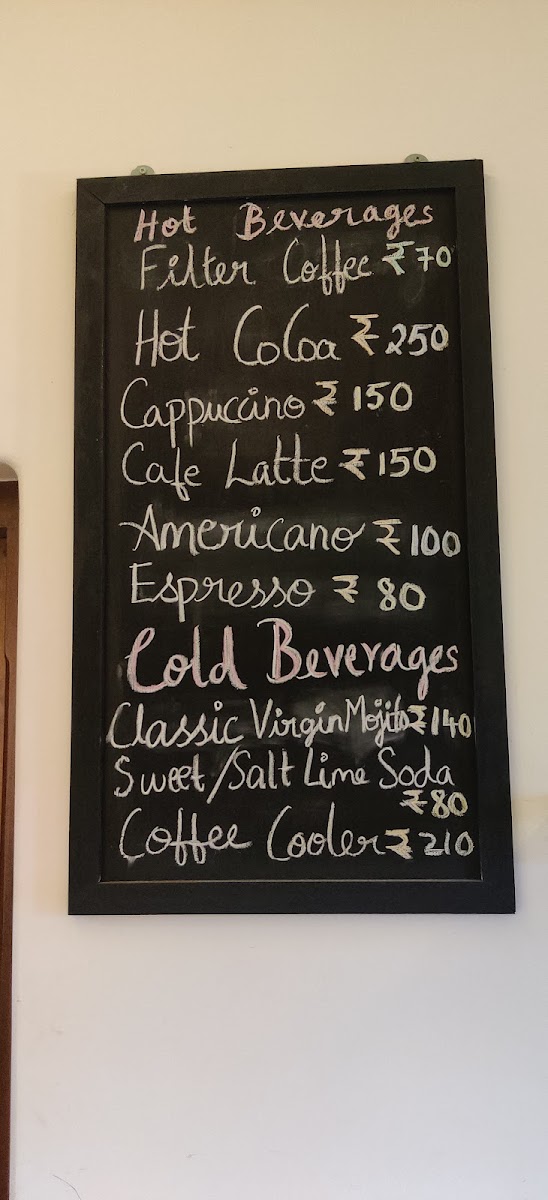 Hot Beverages
Filter Coffee ₹70
Hot CoCoa ₹250
Cappuccino ₹150
Cafe Latte ₹150
Americano ₹100
Espresso ₹80
Cold Beverages
Classic Virgin Mojito ₹140
Sweet/Salt Lime Soda
₹80
Coffee Cooler ₹210